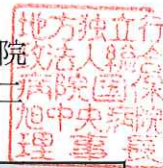 院
地方独立行
政法人総合
病院国保
旭中央病院
理事長